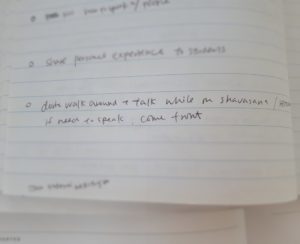 you how to speak of people
o share personal experience to students
o don't walk around + talk while on shavasana /
if need to speak, come front